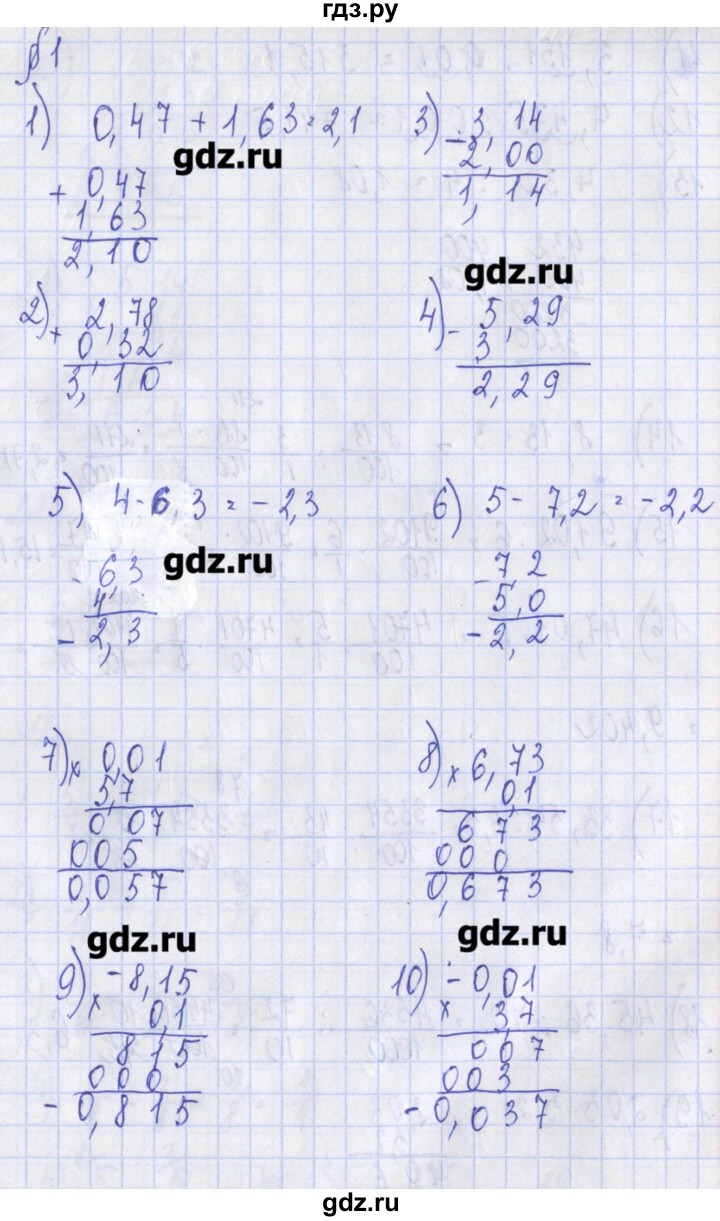 гдз.ру
§1
1) 0,47 + 1,63 = 2,1
+ 0,47
1,63
2,10
gdz.ru
3) - 3,14
2,00
1,14
gdz.ru
2) + 2,78
0,32
3,10
4) - 5,29
3
2,29
5) 4 - 6,3 = - 2,3
- 6,3
4
- 2,3
gdz.ru
6) 5 - 7,2 = - 2,2
- 7,2
5,0
- 2,2
7) x 0,01
5,7
0 07
005
0,057
8) x 6,73
0,1
673
000
0,673
gdz.ru
gdz.ru
9) x -8,15
0,1
815
000
- 0,815
10) x -0,01
3,7
007
003
- 0,037
gdz.ru